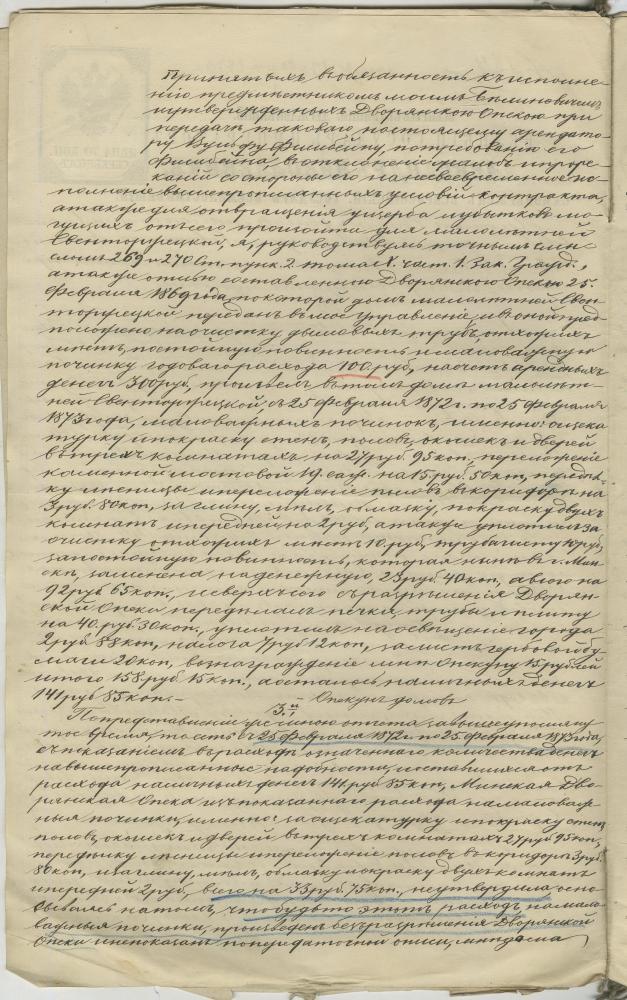 Принятыхъ въ обязанность къ исполне-
нію предмѣстникомъ моимъ
утвержденныхъ Дворянскою Опекою при
передачѣ таковаго настоящему арендато-
ру Вульфу Фишбейну, по требованію его
Фишбейна, въ отклоненіе жалобъ и прере-
каній со стороны его на несвоевременное ис-
полненіе вышепрописанныхъ условій контракта,
а также для отвращенія ущерба и убытковъ мо-
гущихъ отъ сего произойти для малолѣтней
Свенторжецкой, я, руководствуясь точнымъ смы-
сломъ 269 и 270 Ст. пунк. 2. тома X. част. 1. Зак. Гражд.,
а также описью составленною Дворянскою Опекою 25.
Февраля 1869 года, по которой домъ малолѣтней Свен-
торжецкой переданъ въ мое управленіе и въ оной пред-
положено на очистку дымовыхъ трубъ, отхожихъ
мѣстъ, постойную повинность и маловажную
починку годоваго расхода 100 руб., на счетъ арендныхъ
денегъ 300 руб., произвелъ въ томъ домѣ малолѣт-
ней Свенторжецкой, съ 25 Февраля 1872 г. по 25 Февраля
1873 года, маловажныхъ починокъ, именно: ощека-
турку и покраску стенъ, половъ, окошекъ и дверей
въ трехъ комнатахъ на 27 руб. 95 коп., переложеніе
каменной мостовой 19. саж. на 15. руб. 50 коп., передѣл-
ку лѣстницы и переложеніе половъ въ коридорѣ на
3 руб. 80 коп., за глину, мѣлъ, обмазку, покраску двухъ
комнатъ и передней на 2 руб., а также уплотилъ за
очистку отхожихъ мѣстъ 10. руб., трубочисту руб.,
за постойную повинность, которая нынѣ въ г. Мин-
скѣ, замѣнена на денежную, 23 руб. 40 коп., а всего на
92 руб 65 коп., и сверхъ сего съ разрѣшенія Дворян-
ской Опеки передѣлалъ печки, трубы и плиту
на 40. руб. 30 коп., уплотилъ на освѣщеніе города
2 руб. 88 коп., налога 7 руб 12 коп., за листъ гербовой бу-
маги 20 коп., вознагражденіе мнѣ Опекуну 15. рублей
итого 158. руб. 15 коп., а осталось наличныхъ денегъ
141 руб 85 коп. –
3.й Опекунъ домовъ
По представленіи же мною отчета за вышеупомяну-
тое время, то есть съ 25 Февраля 1872 г. по 25 Февраля 1873 года,
съ показаніемъ въ расходѣ означеннаго количества денегъ
на вышепрописанные надобности, и оставшихся отъ
расхода наличныхъ денегъ 141. руб 85 коп., Минская Дво-
рянская Опека изъ показаннаго расхода на маловаж-
ныя починки, именно: за ощекатурку и покраску стенъ,
половъ, окошекъ и дверей въ трехъ комнатахъ 27 руб. 95 коп.,
передѣлку лѣстницы и переложеніе половъ въ коридорѣ 3 руб.
80 коп., и за глину, мѣлъ, обмазку и покраску двухъ комнатъ
и передней 2 руб., всего на 33 руб. 75 коп., не утвердила осно-
вываясь на томъ, что будьто этотъ расходъ на мало-
важныя починки, произведенъ безъ разрѣшенія Дворянской
Опеки и не показанъ по передаточной описи,